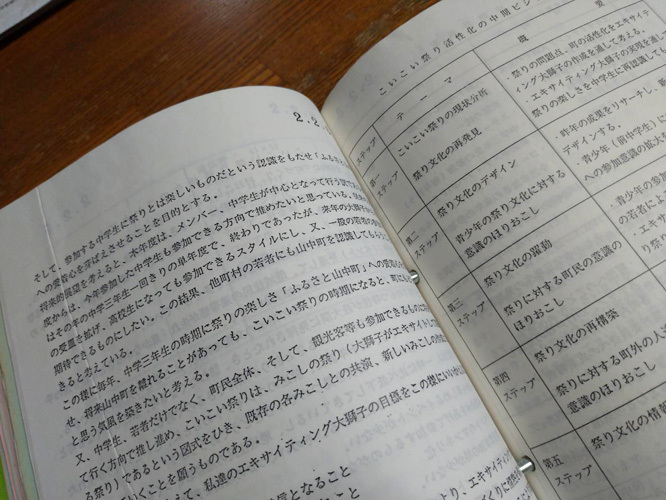 2.2.
そして、参加する中学生に祭りとは楽しいものだという認識をもたせ「ふる
への愛着心を芽ばえさせることを目的とする。
将来的展望を考えると、本年度は、メンバー、中学生が中心となって行う
度からは、今年参加した中学生も参加できる方向で進めたいと思っている。
はその年の中学三年生一回きりの単年度で、終わりであったが、来年の大獅子
の受皿を拡げ、高校生になっても参加できるスタイルにし、又、一般の若者の
期待できるものにしたい。この結果、他町村の若者にも山中町を認識してもら
きると考えている。
この様に毎年、中学三年生の時期に祭りの楽しさ「ふるさと山中町」への愛着
せ、将来山中町を離れることがあっても、こいこい祭りの時期になると、町に
と思う気風を築きたいと考える。
又、中学生、若者だけでなく、町民全体、そして、観光客等も参加できるもの
て行く方向で推し進め、こいこい祭りは、みこしの祭り(大獅子がエキサイト
る祭り)であるという図式をひき、既存の各みこしとの共演、新しいみこしの
いくことを願うものである。
えて、私達のエキサイティング大獅子の目標をこの様に
信となること
こと
こいこい祭り活性化の中期ビジ
ステップ
テーマ
概要
第一
ステップ
こいこい祭りの現状分析
祭り文化の再発見
・祭りの問題点、町の活性化をエキサイテ
ィング大獅子の作成を通して考える。
・エキサイティング大獅子の実現を通し
祭りの楽しさを中学生に再認識して
第二
ステップ
祭り文化のデザイン
青少年の祭り文化に対する
意識のほりおこし
・昨年の成果をリサーチし、
デザインする。
・青少年(前中学生)に
への参加意識の拡大
第三
ステップ
祭り文化の躍動
祭りに対する町民の意識の
ほりおこし
・青少年の参加
の若者に
第四
ステップ
祭り文化の再構築
祭りに対する町外の人
意識のほりおこし
第五
ステップ
祭り文化の情報